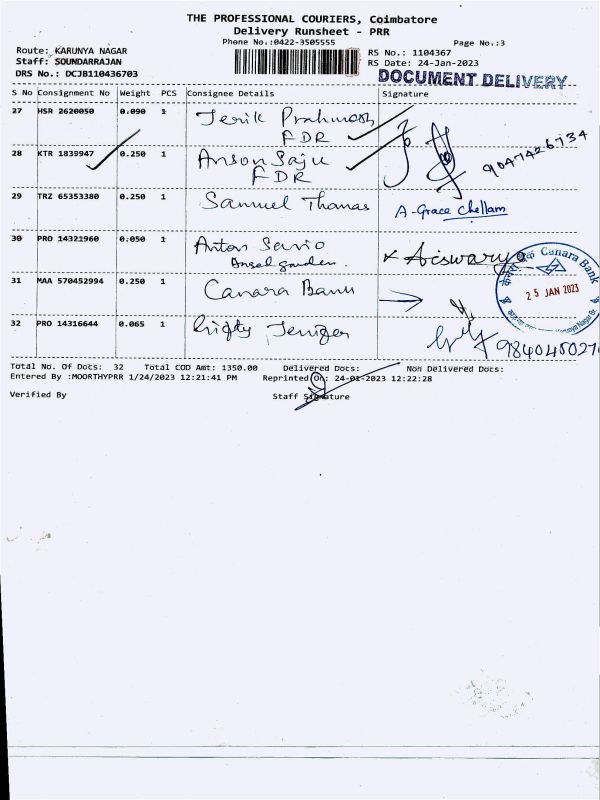 THE PROFESSIONAL COURIERS, Coimbatore
Delivery Runsheet - PRR
Phone No.:0422-3505555
Page No.:3
Route: KARUNYA NAGAR
RS No.: 1104367
Staff: SOUNDARRAJAN
RS Date: 24-Jan-2023
DRS No.: DCJB110436703
DOCUMENT DELIVERY
S No Consignment No Weight PCS Consignee Details Signature
27 HSR 2620050 0.090 1 Jerik Prakmosh
FDR
28 KTR 1839947 0.250 1 Anson Saju 9047426734
FDR
29 TRZ 65353380 0.250 1 Samuel Thomas A-Grace Chellam
30 PRO 14321960 0.050 1 Anton Savio x Aiswarya
Angel garden.
31 MAA 570452994 0.250 1 Canara Bank
Canara Bank
25 JAN 2023
32 PRO 14316644 0.065 1 Jenifer
Total No. Of Docs: 32 Total COD Amt: 1350.00 Delivered Docs: Non Delivered Docs:
Entered By :MOORTHYPRR 1/24/2023 12:21:41 PM Reprinted On: 24-01-2023 12:22:28
Verified By Staff Signature